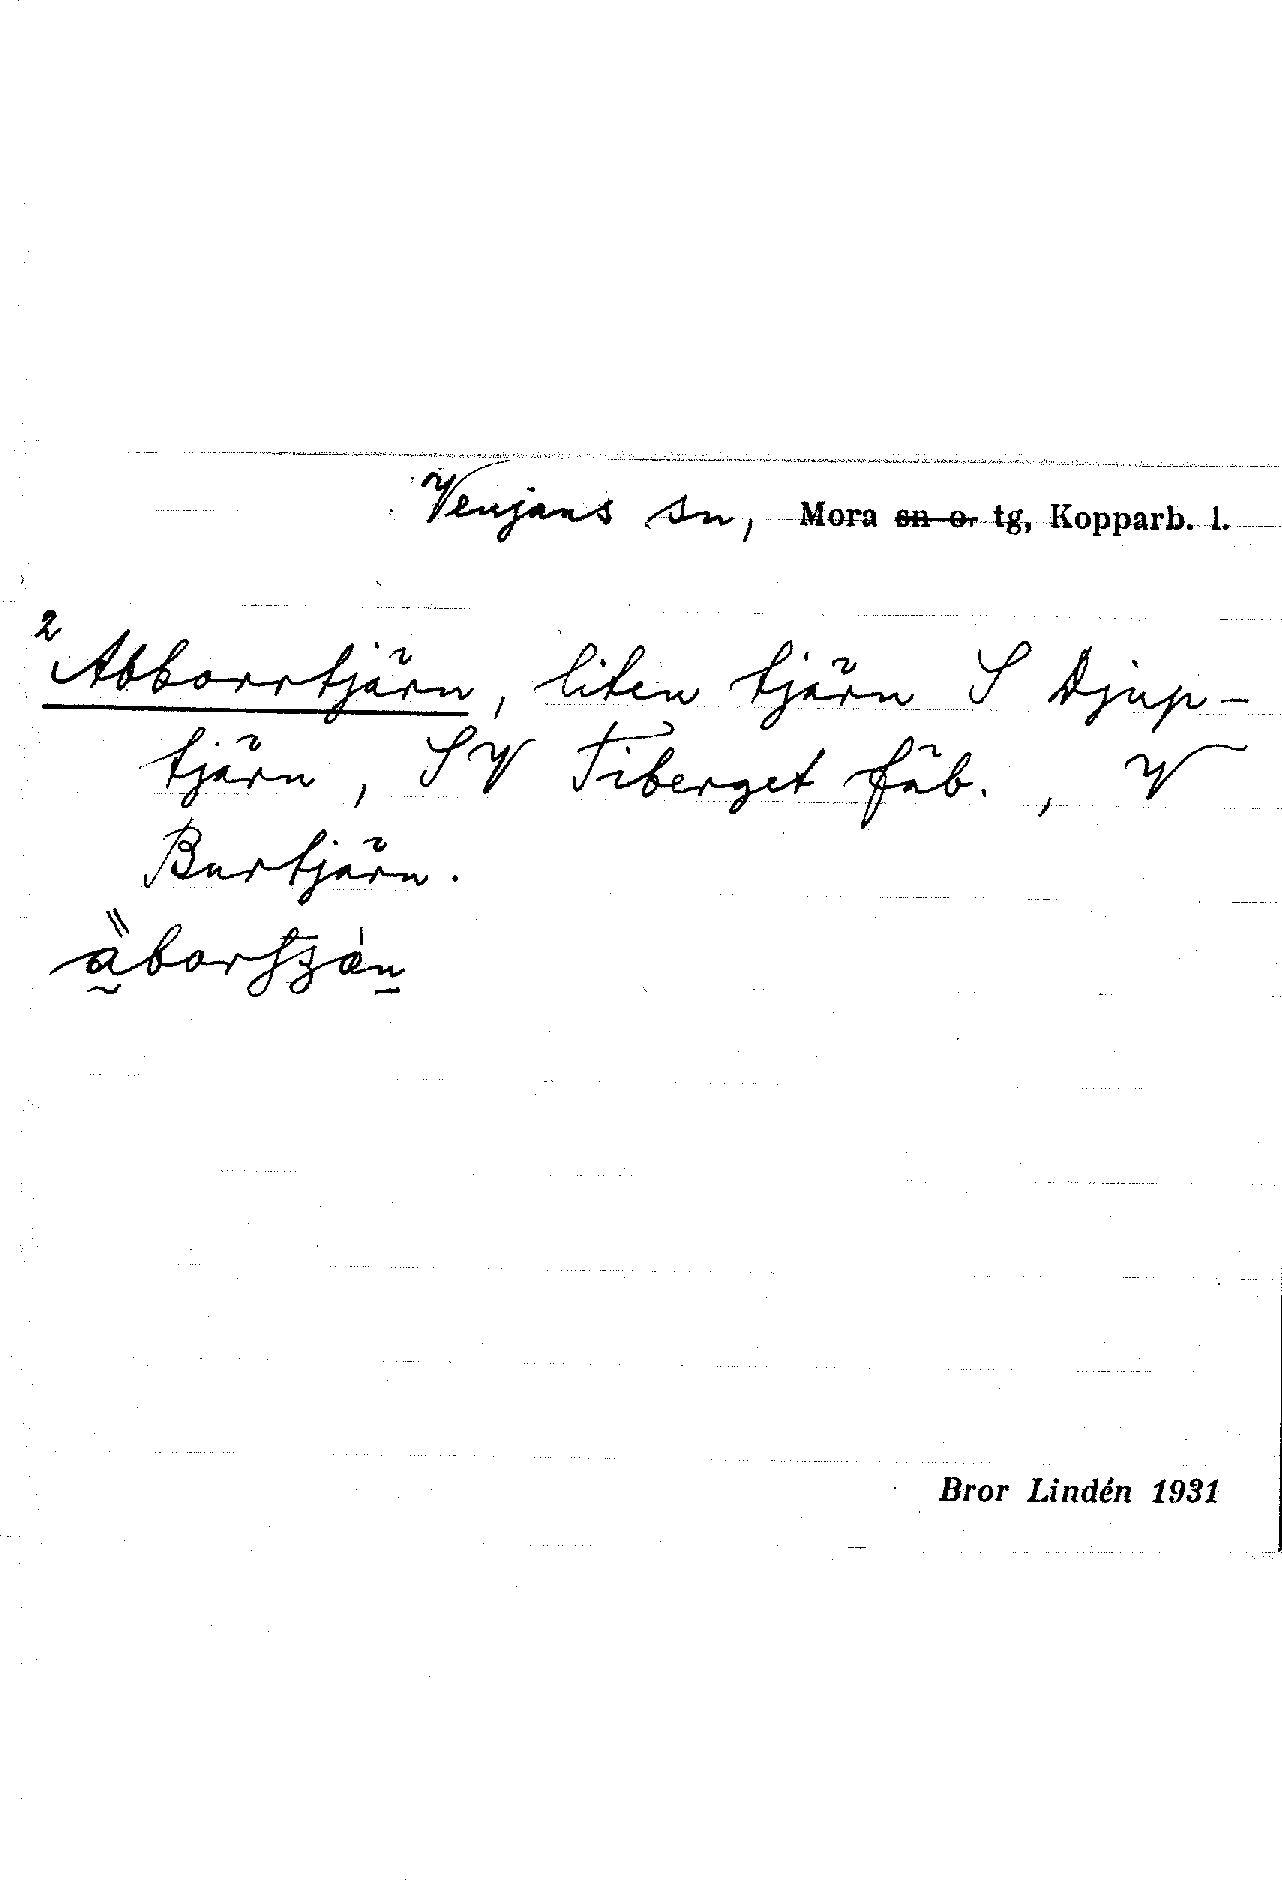 Venjans sn, Mora sn o. tg, Kopparb. l.
2 Abborrtjärn, liten tjärn S Djup-
tjärn, SV Tiberget fäb., V
Burtjärn.
Bror Lindén 1931